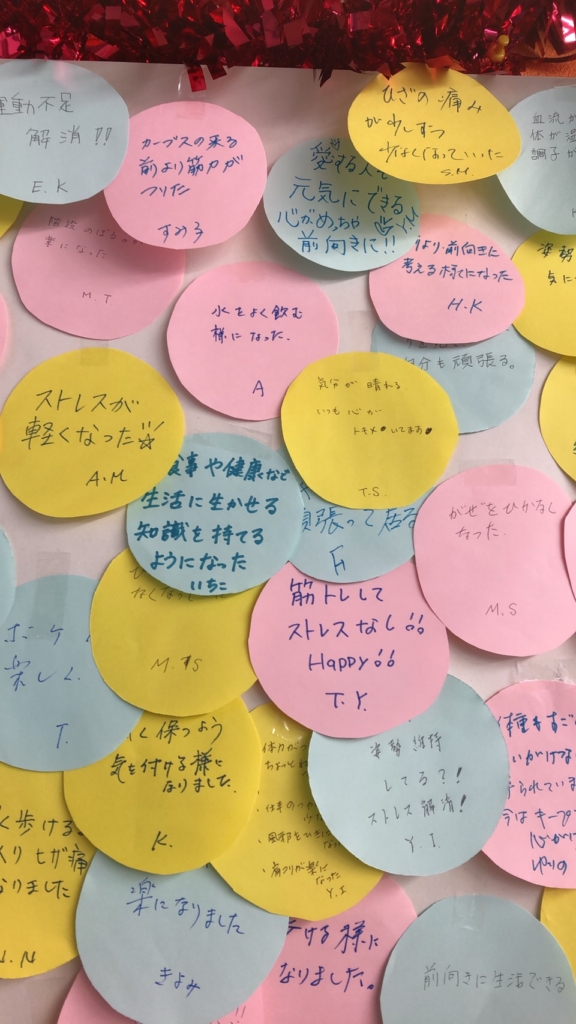 運動不足
解消!!
E.K
カーブスの来る
前より筋力が
ついた
すみ子
ひざの痛み
が少しずつ
少なくなっていった
S.M.
血流が
体が温
調子が
愛する人も
元気にできる
心がめっちゃ
前向きに!!
Y.M
階段のぼるの
楽になった
M.T
より前向きに
考える様になった
H.K
姿勢
気に
水をよく飲む
様になった.
A
自分も頑張る。
ストレスが
軽くなった
A.M
気分が晴れる
いつも心が
トキメいてます
T.S.
食事や健康など
生活に生かせる
知識を持てる
ようになった
いちこ
頑張って居る
F
がぜをひかなく
なった.
M.S
なくなって
M.S
筋トレして
ストレスなし!!
Happy!!
T.Y.
楽しく
T.
く保つよう
気を付ける様に
なりました.
K.
体力がつ
ちょっと
・仕事の
・風邪をひき
・肩コリが楽に
なった
Y.I
姿勢維持
してる?!
ストレス解消!
Y.I
体重もすご
いがけな
けられていま
今はキープ
心がけ
ゆりの
く歩ける
くりヒザ痛
なりました
N.N
楽になりました
きよみ
歩ける様に
なりました。
前向きに生活できる